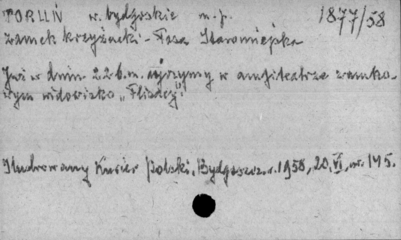 TORUŃ w. bydgoskie m. p. 1877/58
zamek krzyżacki - Fosa Staromiejska
Już w dniu 22 b.m. ujrzymy w amfiteatrze zamko-
wym widowisko "Flisacy".
Ilustrowany Kurier Polski, Bydgoszcz r. 1958, 20, VI, nr. 145.